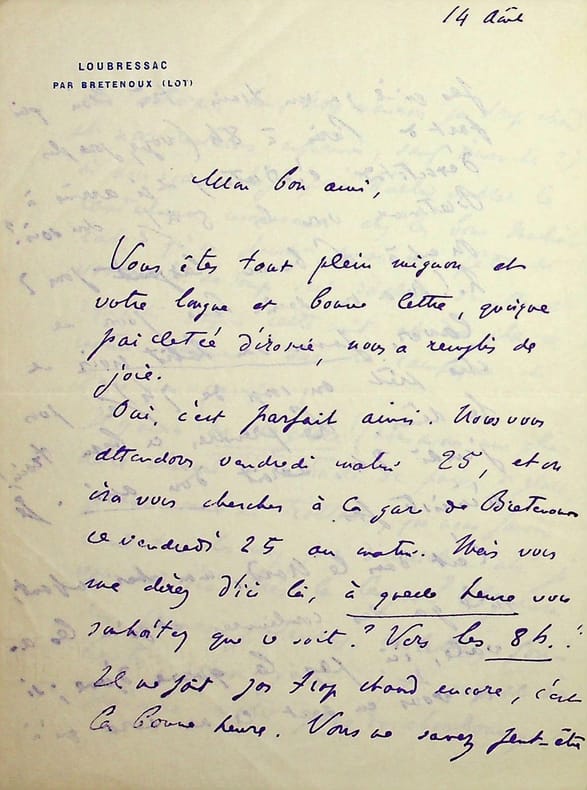 14 Août
LOUBRESSAC
PAR BRETENOUX (LOT)
Mon bon ami,
Vous êtes tout plein mignon et
votre longue et bonne lettre, quoique
d'ironie, nous a remplis de
joie.
Oui, c'est parfait ainsi. Nous vous
attendons vendredi matin 25, et on
ira vous chercher à la gare de Bretenoux
ce vendredi 25 au matin. Mais vous
me direz d'ici là, à quelle heure vous
souhaitez que ce soit? Vers les 8h.?
Il ne fait pas trop chaud encore, c'est
la bonne heure. Vous ne savez peut-être